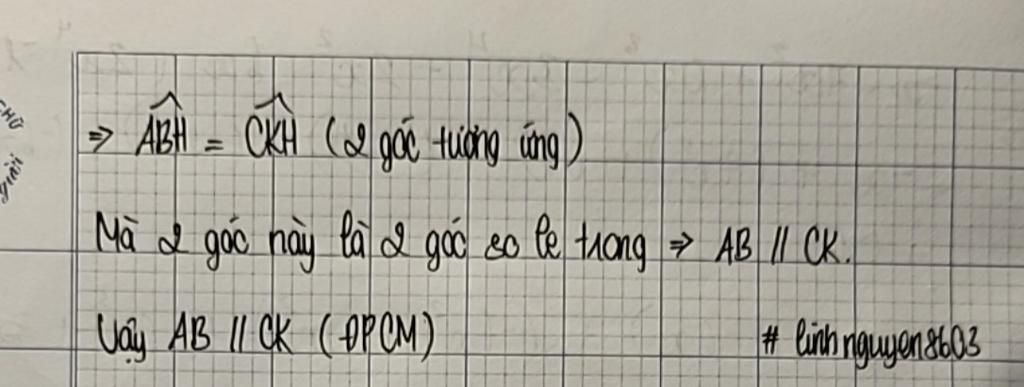 CHỮ
giải
⇒ ABH = CKH (2 góc tương ứng)
Mà 2 góc này là 2 góc so le trong ⇒ AB // CK.
Vậy AB // CK (ĐPCM)
# linhnguyen8603